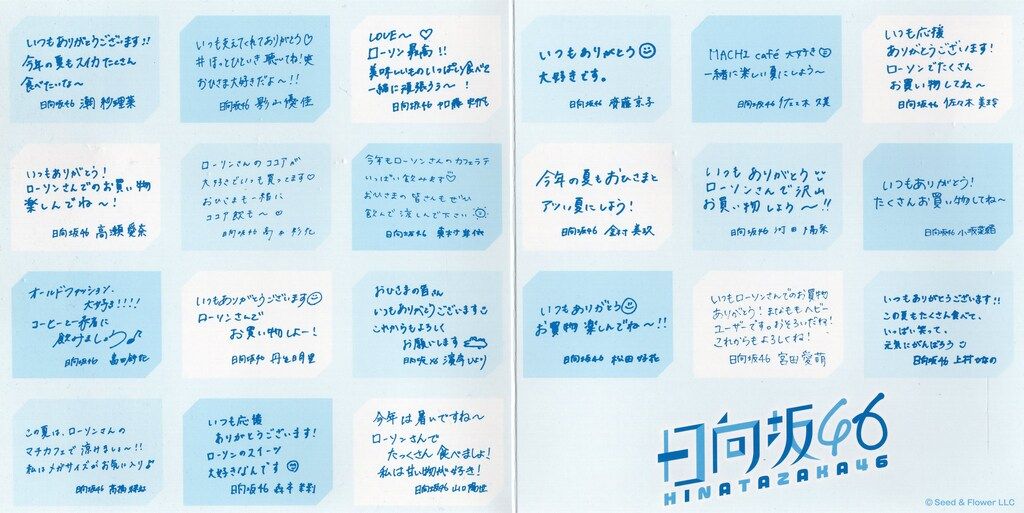 いつもありがとうございます!!
今年の夏もスイカたくさん
食べたいな〜
日向坂46 潮 紗理菜
いつも支えてくれてありがとう♡
#ほっとひといき 聴いてね!
おひさま大好きだよ〜!!
日向坂46 影山優佳
LOVE〜♡
ローソン最高!!
美味しいものいっぱい食べて
一緒に頑張ろう〜!
日向坂46 加藤史帆
いつもありがとう
大好きです。
日向坂46 齊藤京子
MACHI café 大好き
一緒に楽しい夏にしよう〜
日向坂46 佐々木久美
いつも応援
ありがとうございます!
ローソンでたくさん
お買い物してね〜
日向坂46 佐々木美玲
いつもありがとう!
ローソンさんでのお買い物
楽しんでね〜!
日向坂46 高瀬愛奈
ローソンさんのココアが
大好きでいつも買ってます♡
おひさまも一緒に
ココア飲も〜♡
日向坂46
今年もローソンさんのカフェラテ
いっぱい飲みます♡
おひさまの皆さんもぜひ
飲んで涼しんで下さい
日向坂46
今年の夏もおひさまと
アツい夏にしよう!
日向坂46 金村美玖
いつもありがとう
ローソンさんで沢山
お買い物しよう〜!!
日向坂46 河田陽菜
いつもありがとう!
たくさんお買い物してね〜
日向坂46 小坂菜緒
オールドファッション、
大好き!!!!
コーヒーと一緒に
飲みましょう♪
日向坂46 富田鈴花
いつもありがとうございます
ローソンで
お買い物しよー!
日向坂46 丹生明里
おひさまの皆さん
いつもありがとうございます
これからもよろしく
お願いします
日向坂46 濱岸ひより
いつもありがとう
お買物 楽しんでね〜!!
日向坂46 松田好花
いつもローソンさんでのお買物
ありがとう!まなもももヘビー
ユーザーです。おそろいだね!
これからもよろしてね!
日向坂46 宮田愛萌
いつもありがとうございます!!
この夏もたくさん食べて、
いっぱい笑って、
元気にがんばろう
日向坂46 上村ひなの
この夏は、ローソンさんの
マチカフェで涼けましょ〜!!
私はメガサイズがお気に入り♪
日向坂46 髙橋未来虹
いつも応援
ありがとうございます!
ローソンのスイーツ
大好きなんです
日向坂46 森本茉莉
今年は暑いですね〜
ローソンさんで
たっくさん食べましょ!
私は甘い物が好き!
日向坂46 山口陽世
日向坂46
HINATAZAKA46
© Seed & Flower LLC